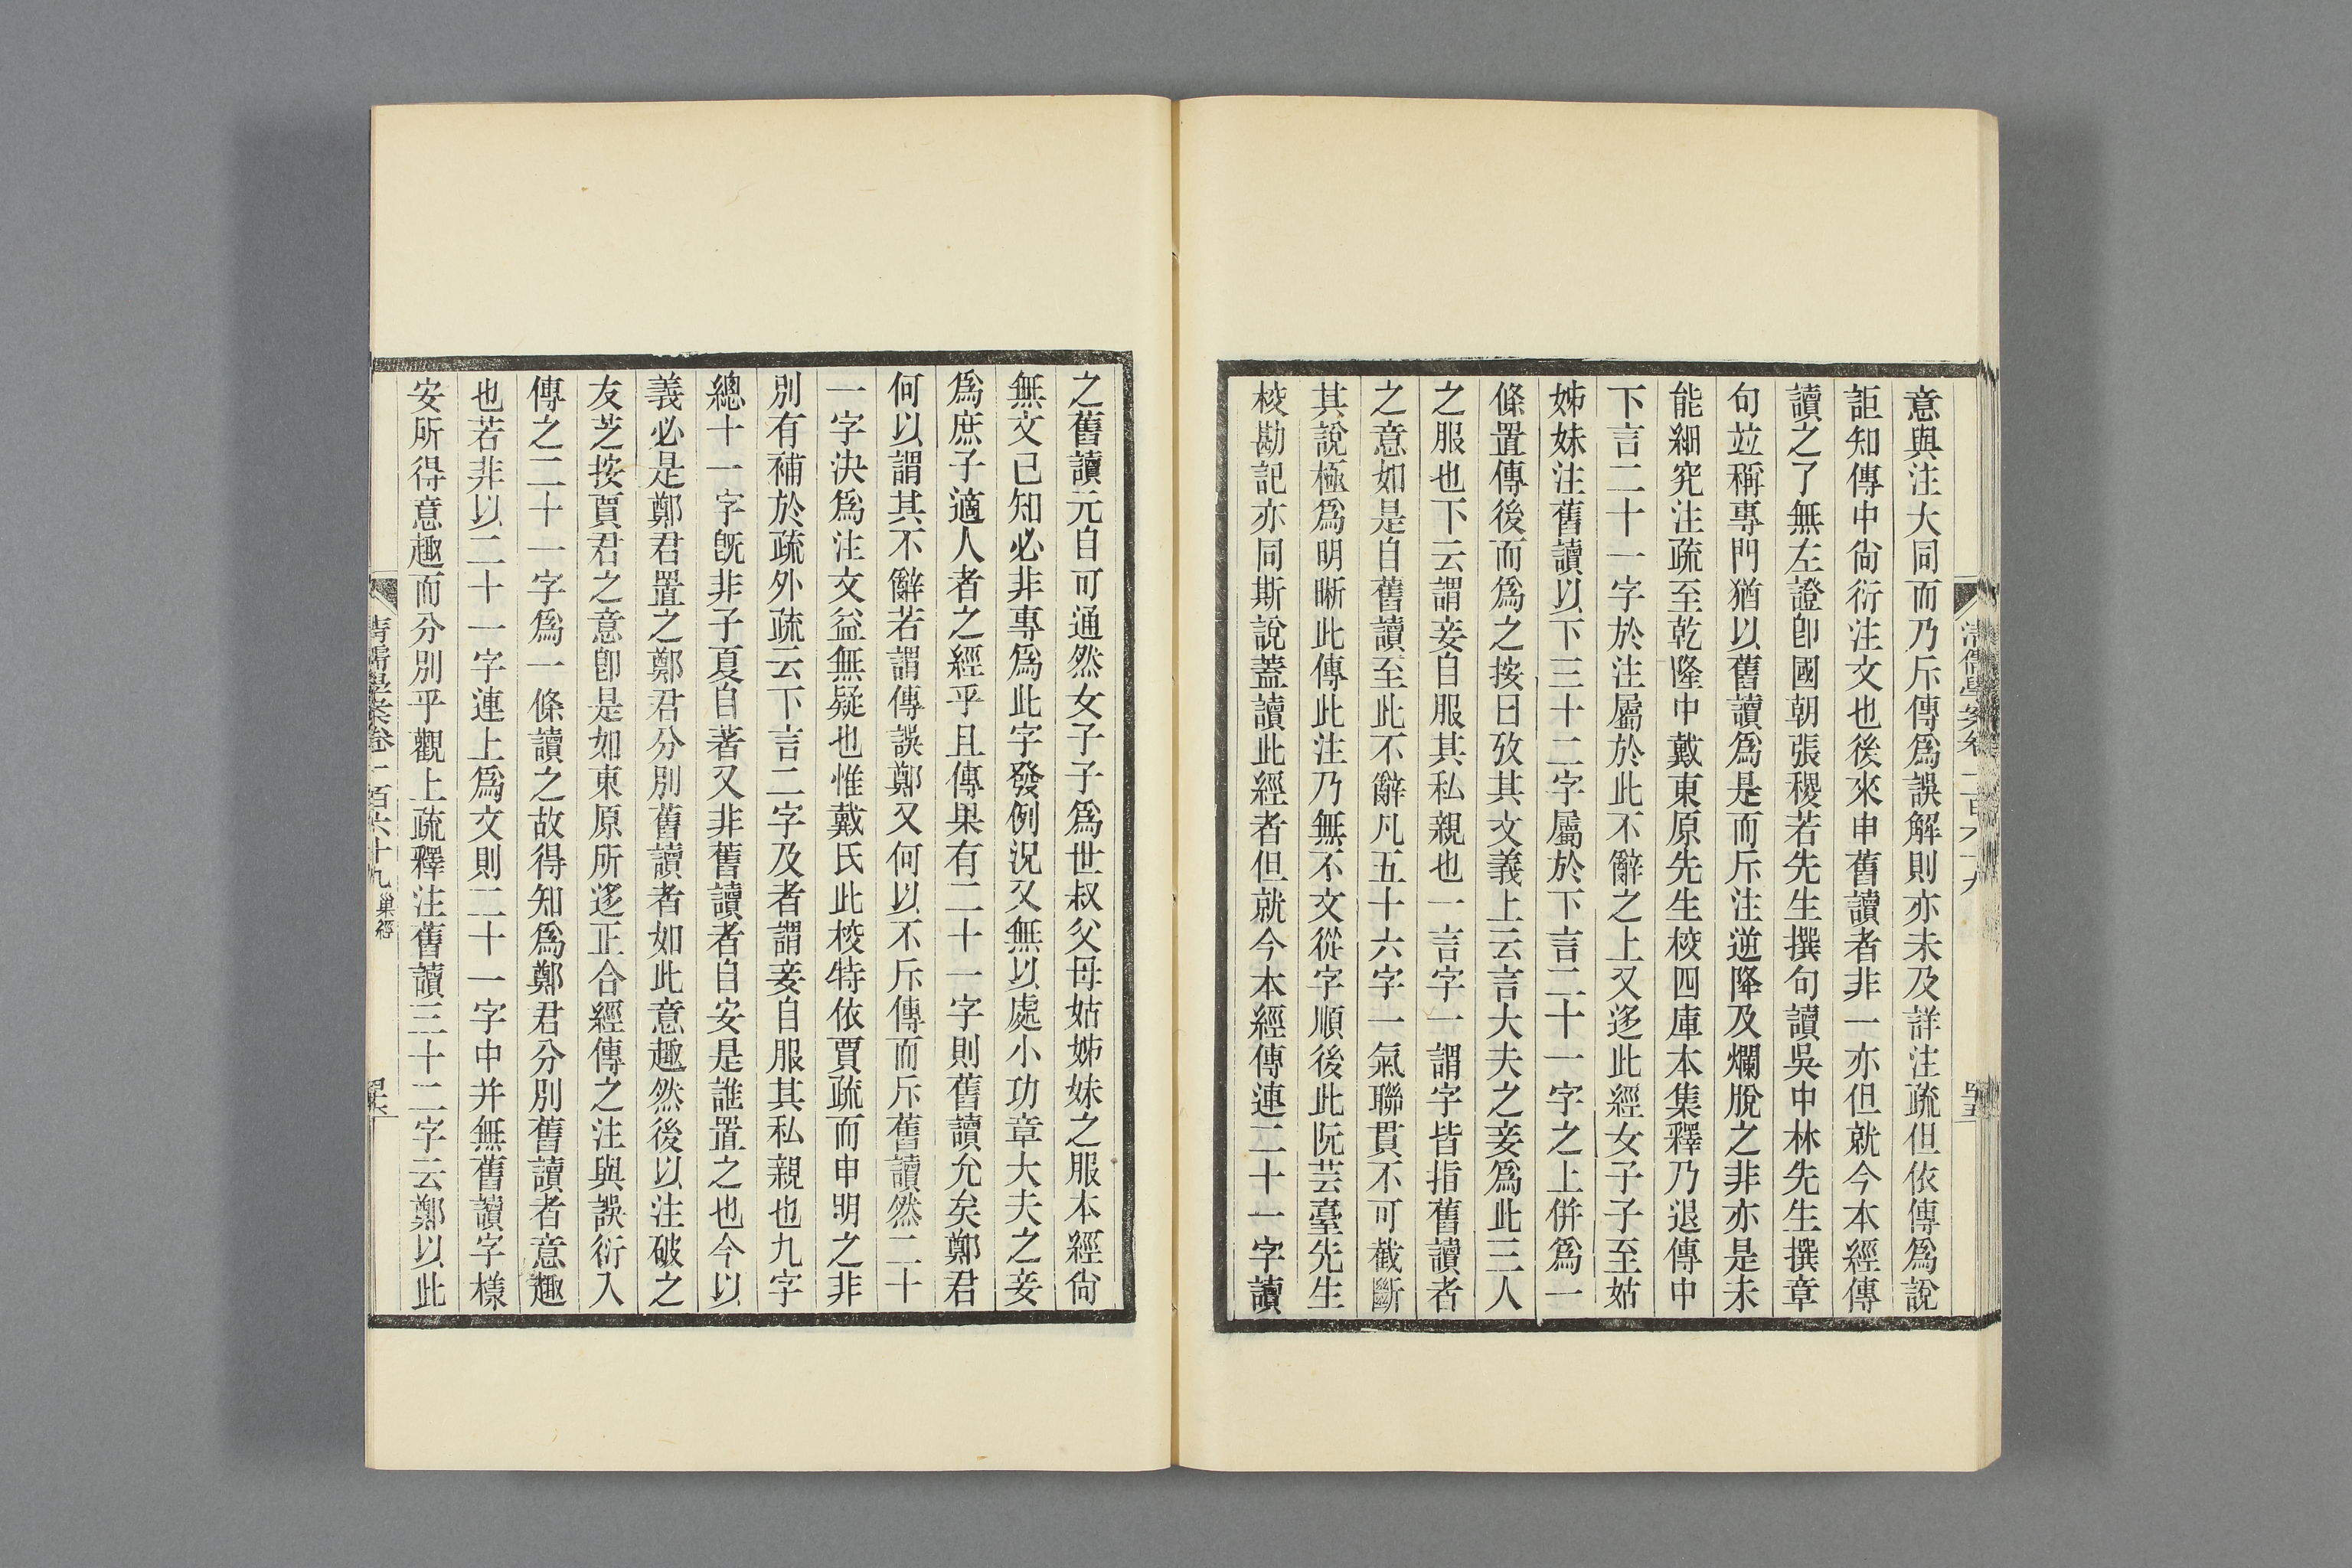 意與注大同而乃斥傳爲誤解則亦未及詳注疏但依傳爲說
詎知傳中尙衍注文也後來申舊讀者非一亦但就今本經傳
讀之了無左證卽國朝張稷若先生撰句讀吳中林先生撰章
句竝稱專門猶以舊讀爲是而斥注逆降及爛脫之非亦是未
能細究注疏至乾隆中戴東原先生校四庫本集釋乃退傳中
下言二十一字於注屬於此不辭之上又迻此經女子子至姑
姊妹注舊讀以下三十二字屬於下言二十一字之上併爲一
條置傳後而爲之按曰攷其文義上云言大夫之妾爲此三人
之服也下云謂妾自服其私親也一言字一謂字皆指舊讀者
之意如是自舊讀至此不辭凡五十六字一氣聯貫不可截斷
其說極爲明晰此傳此注乃無不文從字順後此阮芸臺先生
校勘記亦同斯說蓋讀此經者但就今本經傳連二十一字讀
之舊讀元自可通然女子子爲世叔父母姑姊妹之服本經尙
無文已知必非專爲此字發例況又無以處小功章大夫之妾
爲庶子適人者之經乎且傳果有二十一字則舊讀允矣鄭君
何以謂其不辭若謂傳誤鄭又何以不斥傳而斥舊讀然二十
一字決爲注文益無疑也惟戴氏此校特依賈疏而申明之非
別有補於疏外疏云下言二字及者謂妾自服其私親也九字
總十一字旣非子夏自著又非舊讀者自安是誰置之也今以
義必是鄭君置之鄭君分別舊讀者如此意趣然後以注破之
友芝按賈君之意卽是如東原所迻正合經傳之注與誤衍入
傳之二十一字爲一條讀之故得知爲鄭君分別舊讀者意趣
也若非以二十一字連上爲文則二十一字中并無舊讀字樣
安所得意趣而分別乎觀上疏釋注舊讀三十二字云鄭以此
清儒學案卷二百六十九 巢經